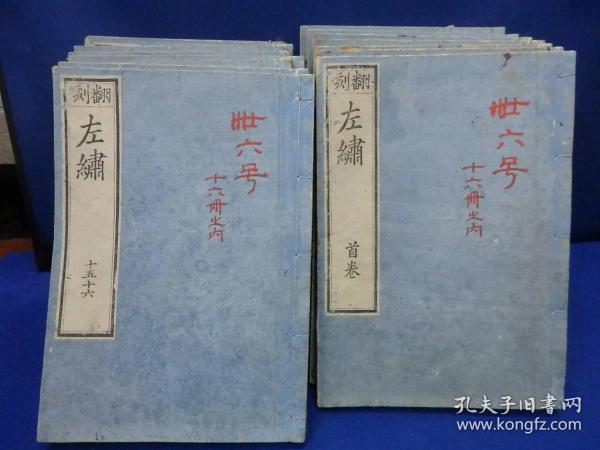 翻刻
左繡
十五十六
卌六号
十六冊之内
翻刻
左繡
首卷
卌六号
十六冊之内
孔夫子旧书网
www.kongfz.com